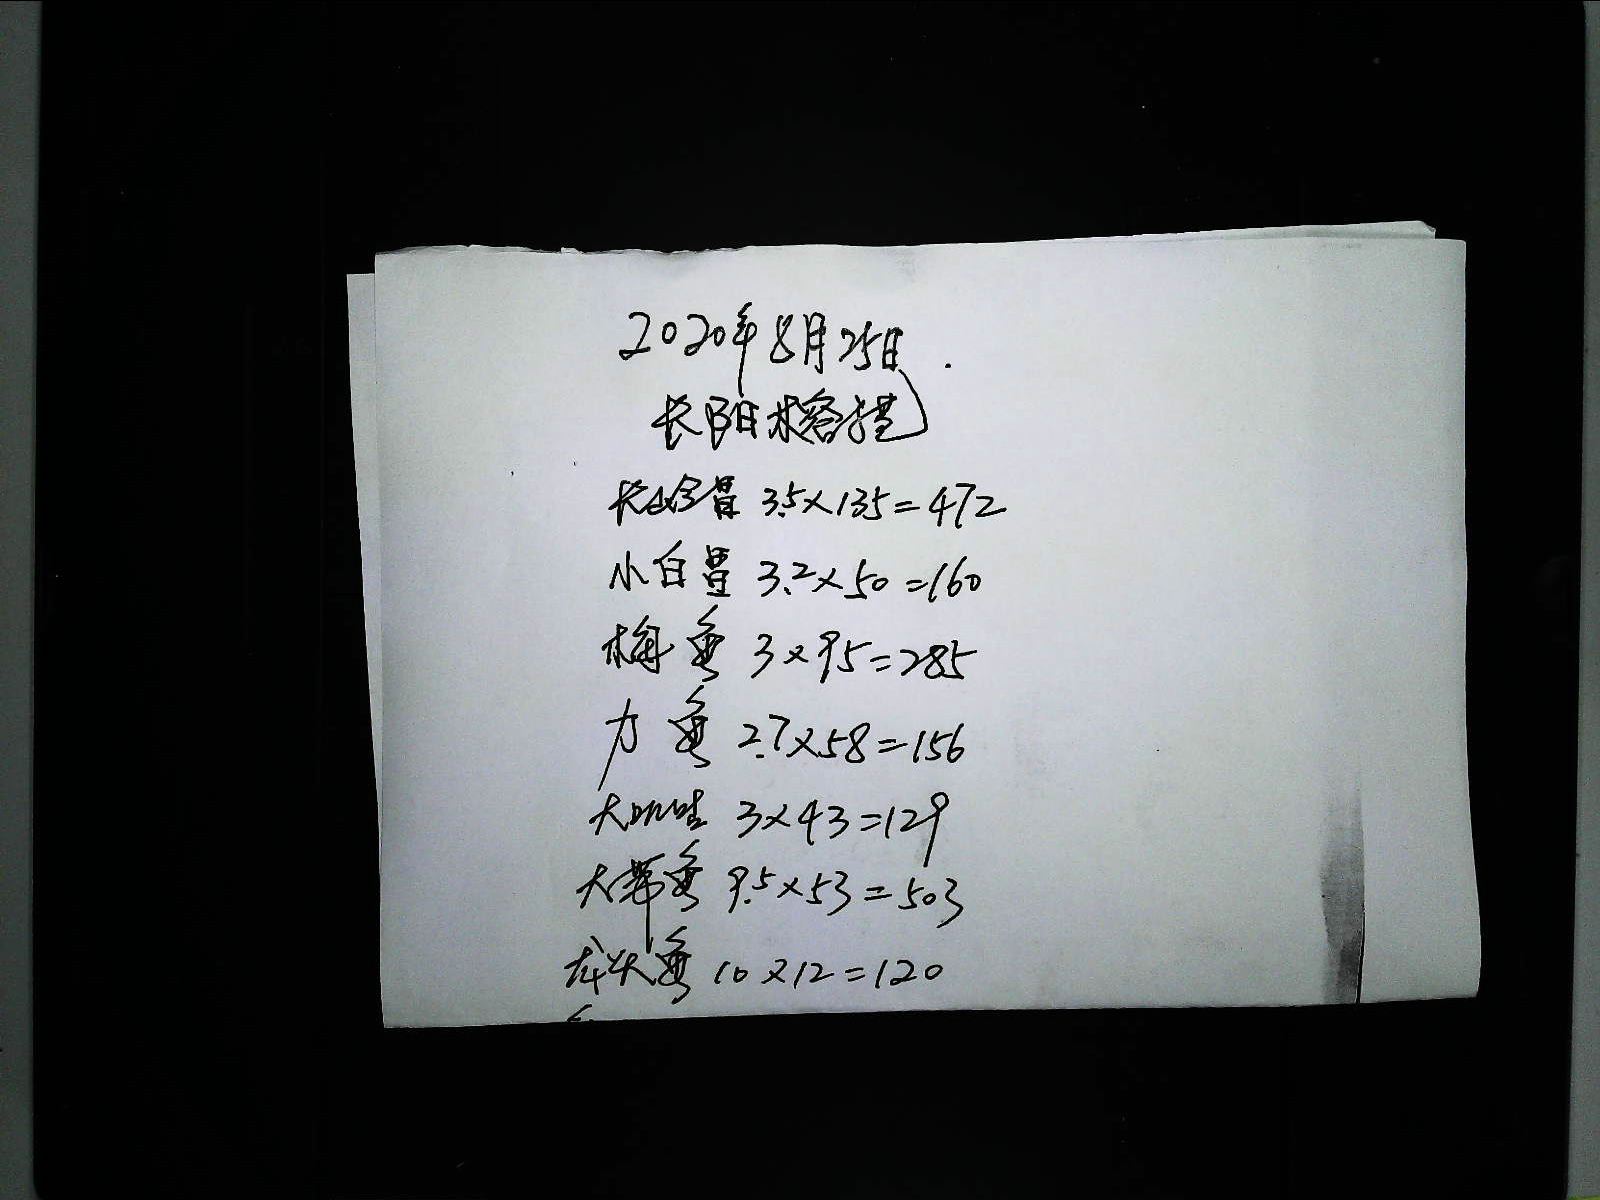 2020年8月25日.
长阳
长 3.5×135=472
小白 3.2×50=160
梅鱼 3×95=285
力鱼 2.7×58=156
大 3×43=129
大带鱼 9.5×53=503
龙头鱼 10×12=120